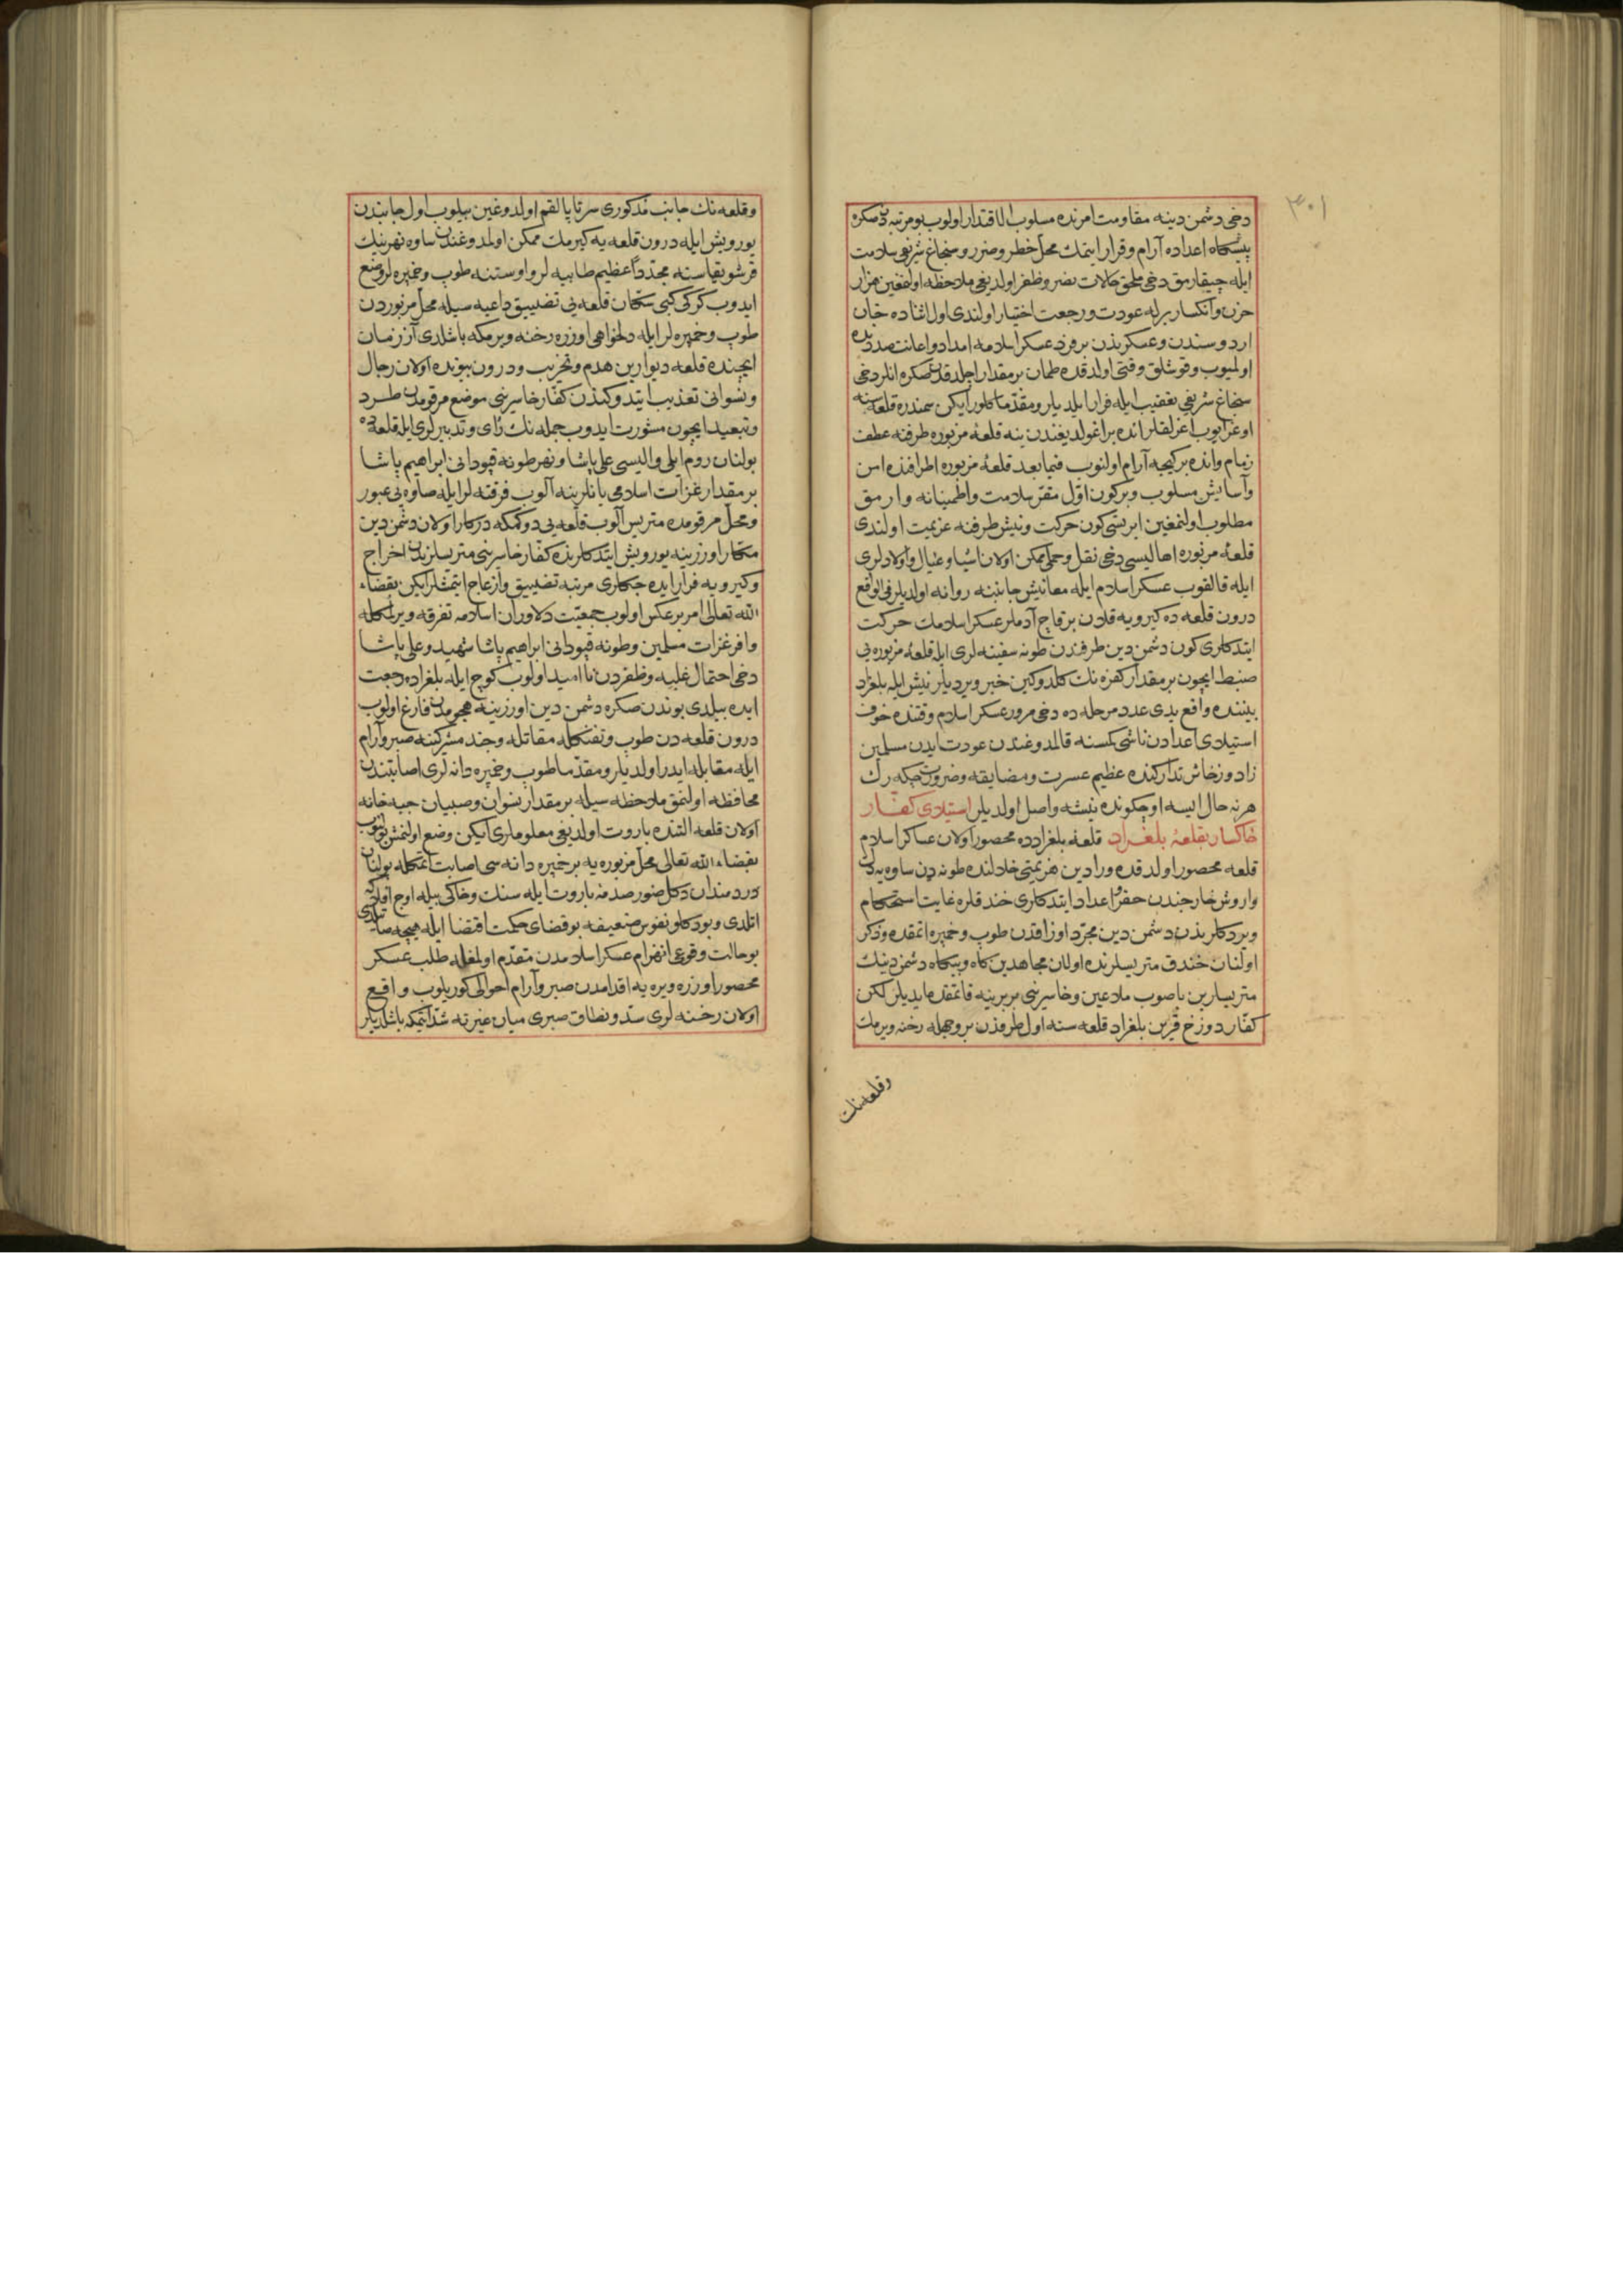 ٣٠١
دخی دشمن دینه مقاومت امرنده مسلوب الاقتدار اولوب بو مرتبه دن صکره
پیشکاه اعداده آرام و قرار ایتمك محل خطر و ضرر و سنجاغ شریفی سلامت
ایله چیقارمق دخی ملحق حالات نصر و ظفر اولدیغی ملاحظه اولنمغین هزار
حزن و انکسار برله عودت و رجعت اختیار اولندی اول اثناده خان
اردوسندن و عسکریندن بر فرد عسکر اسلامه امداد و اعانت صددنده
اولمیوب وقوشلق وقتی اولدقده طمان بر مقدار اچلدقدن صکره انلر دخی
سنجاغ شریفی تعقیب ایله فرار ایلدیلر و مقدما کلورایکن سمندره قلعه سنه
اوغرایوب اغرلقلر انده براغولدیغندن ینه قلعۀ مزبوره طرفنه عطف
زمام وانده بر کیجه آرام اولنوب فیما بعد قلعۀ مزبوره اطرافنده امن
و آسایش مسلوب و برکون اوّل مقرّ سلامت و اطمینانه وارمق
مطلوب اولنمغین ایرتسی کون حرکت و نیش طرفنه عزیمت اولندی
قلعۀ مزبوره اهالیسی دخی نقل و حملی ممکن اولان اشیا و عیال و اولادلری
ایله قالقوب عسکر اسلام ایله معا نیش جانبنه روانه اولدیلر فی الواقع
درون قلعه ده کیرویه قلان بر قاچ آدملر عسکر اسلامك حرکت
ایتدکلری کون دشمن دین طرفندن طونه سفینه لری ایله قلعۀ مزبوره یی
ضبط ایچون بر مقدار کفره نك کلدوکین خبر ویردیلر نیش ایله بلغراد
بیننده واقع یدی عدد مرحله ده دخی مرور عسکر اسلام وقتنده خوف
استیلای اعدادن ناشی کمسنه قالمدوغندن عودت ایدن مسلمین
زاد و زخائر تدارکنده عظیم عسرت و مضایقه و ضرورت چکه رك
هر نه حال ایسه اوچ کونده نیشه واصل اولدیلر استیلای کفّار
خاکسار بقلعۀ بلغراد قلعۀ بلغرادده محصور اولان عساکر اسلام
قلعه محصور اولدقده ورادین هزیمتی خلالنده طونه دن ساوه یه دك
واروش خارجندن حفر و اعداد ایتدکلری خندقلره غایت استحکام
ویردکلریندن دشمن دین مجرّد اوزاقدن طوپ و خمپره اتمقده و ذکر
اولنان خندق متریسلرنده اولان مجاهدین کاه و بیکاه دشمن دینك
متریسلرین باصوب ملاعین و خاسرینی بربرینه قاتمقده ایدیلر لکن
کفّار دوزخ قرین بلغراد قلعه سنه اول طرفدن بر وجهله رخنه ویرمك
وقلعه نك
وقلعه نك جانب مذکوری سرتاپا لقم اولدوغین بیلوب اول جانبدن
یورویش ایله درون قلعه یه کیرمك ممکن اولمدوغندن ساوه نهرینك
قرشو یقاسنه مجدّداً عظیم طابیه لر و اوستنه طوپ و خمپره لر وضع
ایدوب کرکی کبی سکان قلعه یی تضییق داعیه سیله محلّ مزبوردن
طوپ و خمپره لر ایله دلخواهی اوزره رخنه ویرمکه باشلدی آز زمان
ایچنده قلعه دیوارین هدم و تخریب و درون بیوتده اولان رجال
و نسوانی تعذیب ایتدوکندن کفّار خاسرینی موضع مرقومدن طرد
و تبعید ایچون مشورت ایدوب جمله نك رای و تدبیرلری ایله قلعه ده
بولنان روم ایلی والیسی علی پاشا و نهر طونه قپودانی ابراهیم پاشا
بر مقدار غزات اسلامی یانلرینه آلوب فرقته لر ایله صاوه یی عبور
و محلّ مرقومده متریس آلوب قلعه یی دوکمکه درکار اولان دشمن دین
مکّار اوزرینه یورویش ایتدکلرنده کفّار خاسرینی متریسلرندن اخراج
و کیرویه فرار ایده جکلری مرتبه تضییق و ازعاج ایتمشلرایکن بقضاء
الله تعالی امر برعکس اولوب جمعیّت دلاوران اسلامه تفرقه ویرلمکله
وافر غزات مسلمین و طونه قپودانی ابراهیم پاشا شهید و علی پاشا
دخی احتمال غلبه و ظفردن نا امید اولوب کوچ ایله بلغراده رجعت
ایده بیلدی بوندن صکره دشمن دین اوزرینه هجومدن فارغ اولوب
درون قلعه دن طوپ و تفنکله مقاتله و جند مشرکینه صبر و آرام
ایله مقابله ایدر اولدیلر و مقدّما طوپ و خمپره دانه لری اصابتندن
محافظه اولنمق ملاحظه سیله بر مقدار نسوان و صبیان جبه خانه
اولان قلعه التنده باروت اولدیغی معلوملری ایکن وضع اولنمش
بقضاء الله تعالی محلّ مزبوره یه بر خمپره دانه سی اصابت اتمکله بولنان
دردمندان صدمۀ باروت ایله سنك و خاکی بیله اوج افلاکه
اتلدی و بو دکلو نفوس ضعیفه بو قضای حکمت اقتضا ایله
بو حالت وقوعی انهزام عسکر اسلامدن متقدّم اولمغله طلب عسکر
محصور اوزره ویره یه اقدامدن صبر و آرام احوالی کوریلوب واقع
اولان رخنه لری سدّ و نطاق صبری میان غیرته شدّ ایتمکه باشلدیلر